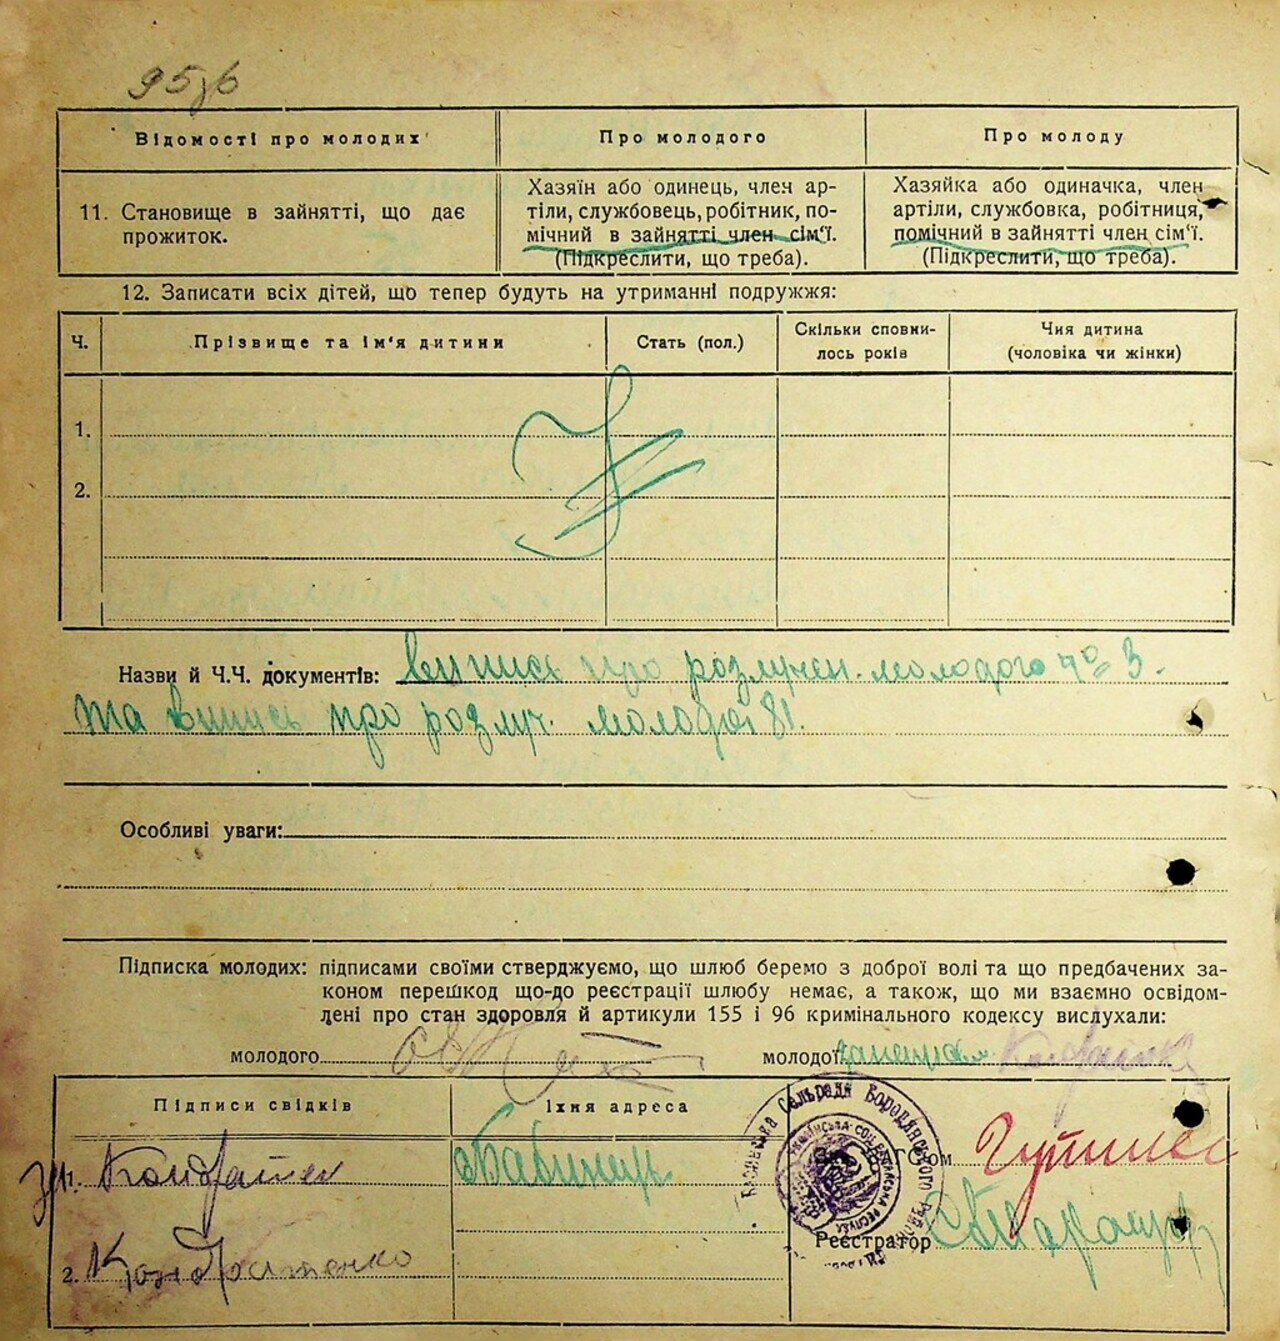 Відомості про молодих
Про молодого
Про молоду
11. Становище в зайнятті, що дає
прожиток.
Хазяїн або одинець, член ар-
тіли, службовець, робітник, по-
мічний в зайнятті член сім'ї.
(Підкреслити, що треба).
Хазяйка або одиначка, член
артіли, службовка, робітниця,
помічний в зайнятті член сім'ї.
(Підкреслити, що треба).
12. Записати всіх дітей, що тепер будуть на утриманні подружжя:
Ч.
Прізвище та ім'я дитини
Стать (пол.)
Скільки сповни-
лось років
Чия дитина
(чоловіка чи жінки)
1.
2.
Назви й Ч.Ч. документів: випись про розлучен. молодого 3.
та випись про розлуч. молодої 81.
Особливі уваги:
Підписка молодих: підписами своїми стверджуємо, що шлюб беремо з доброї волі та що предбачених за-
коном перешкод що-до реєстрації шлюбу немає, а також, що ми взаємно освідом-
лені про стан здоровля й артикули 155 і 96 кримінального кодексу вислухали:
молодого
молодої
Підписи свідків
Їхня адреса
Бабинець
2. Кондратенко
Реєстратор